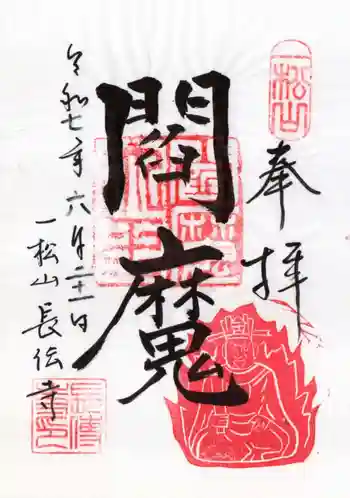 一松山
奉拝
閻魔
令和七年六月二十一日
一松山長伝寺